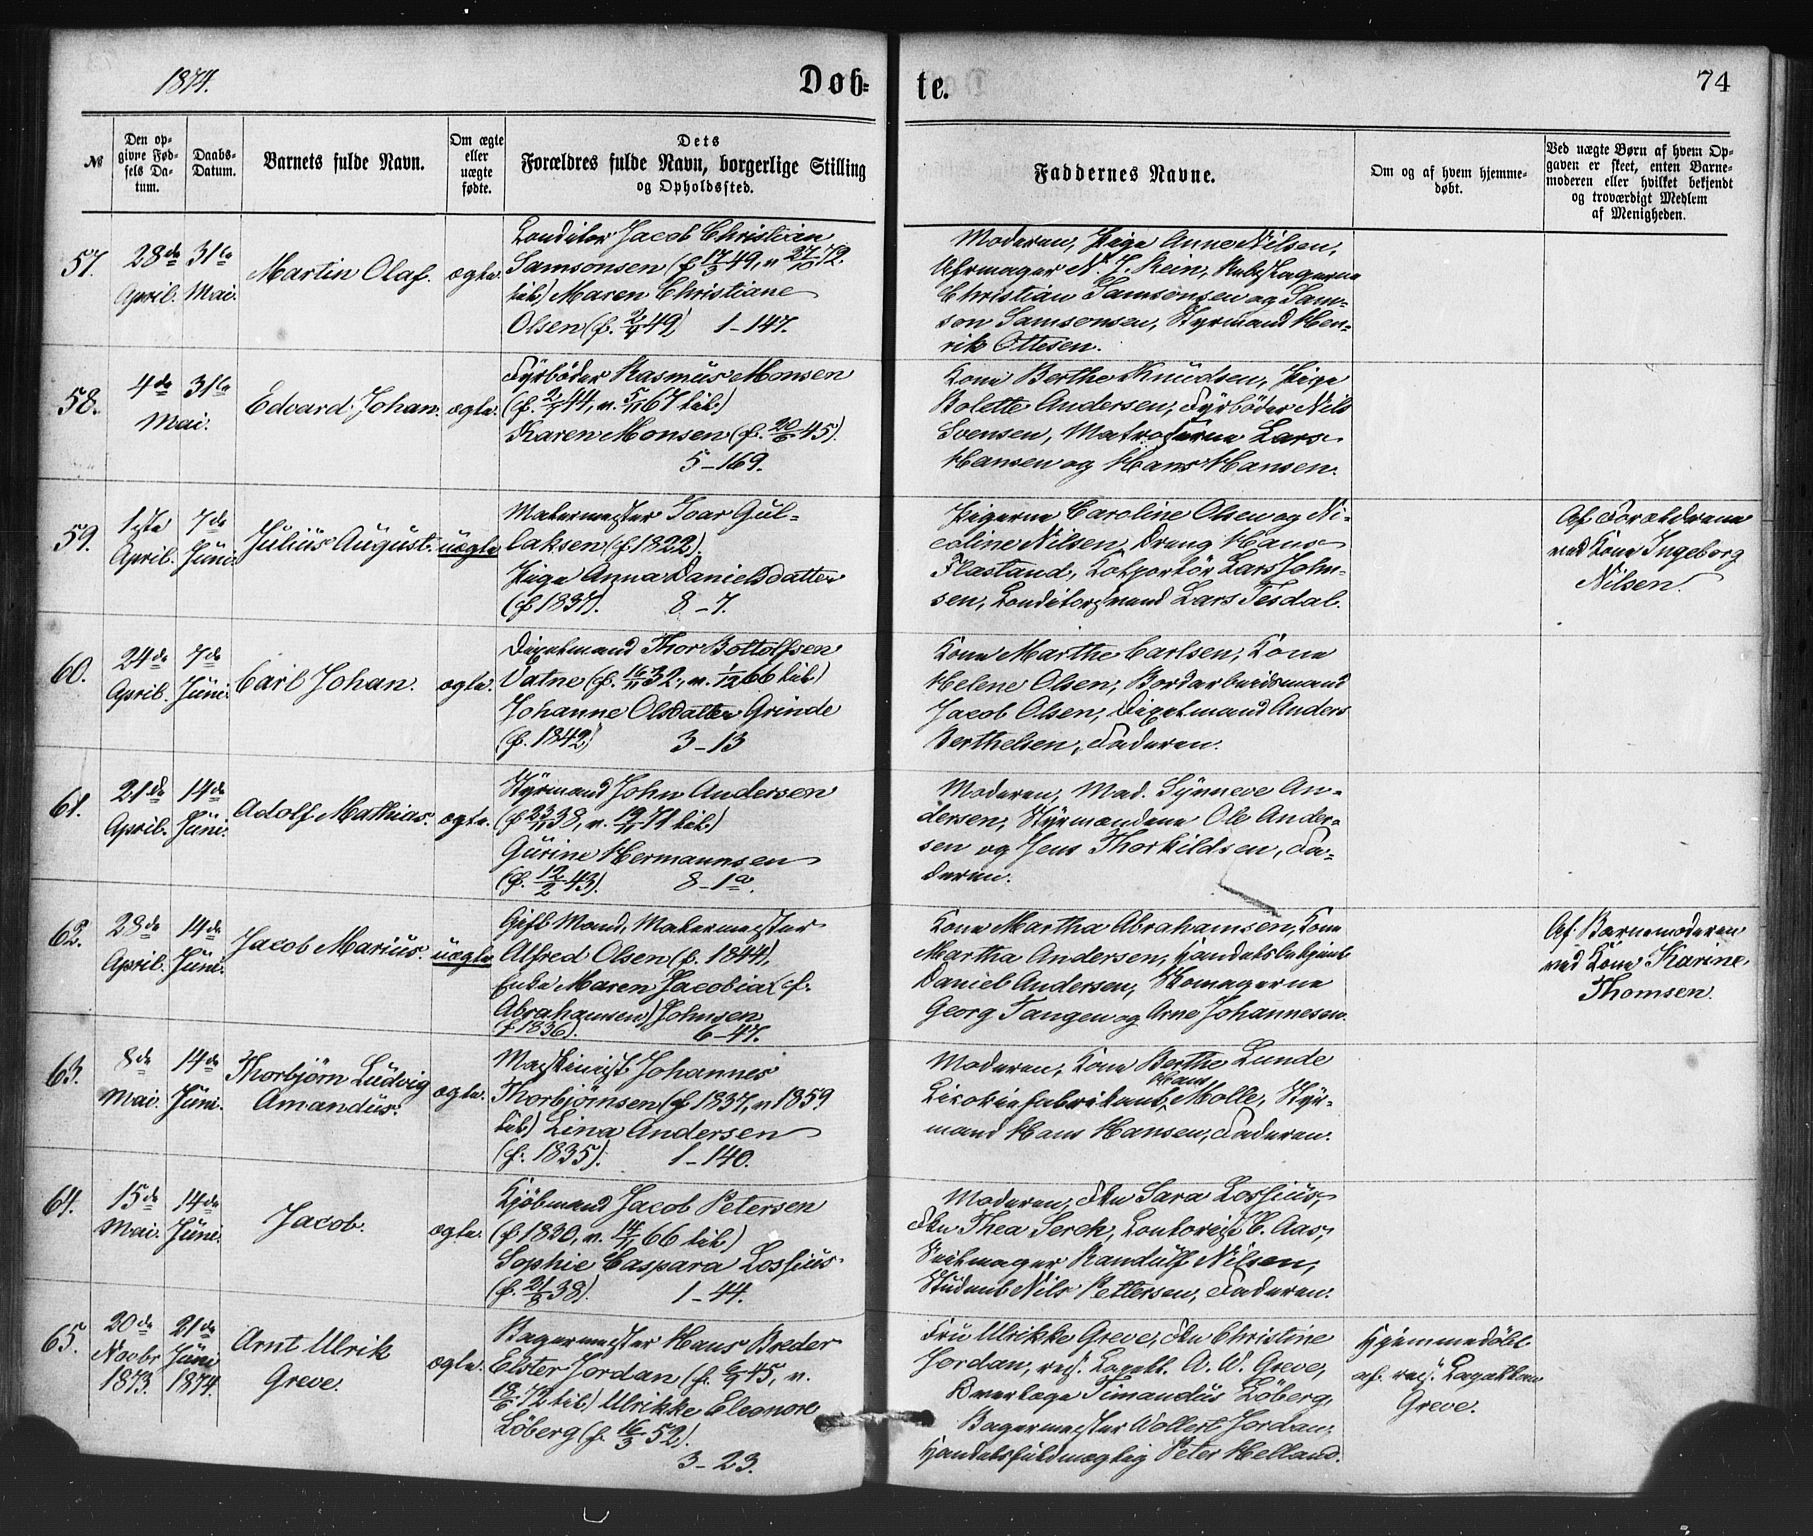 1874.
Døb=
te.
74
№
Den op=
givne Fød=
sels Da=
tum.
Daabs=
Datum.
Barnets fulde Navn.
Om ægte
eller
uægte
fødte.
Dets
Forældres fulde Navn, borgerlige Stilling
og Opholdssted.
Faddernes Navne.
Om og af hvem hjemme=
døbt.
Ved uægte Børn af hvem Op=
gaven er skeet, enten Barne=
moderen eller hvilket bekjendt
og troværdigt Medlem
af Menigheden.
57.
28de
April.
31te
Mai.
Martin Olaf.
ægte.
Conditor Jacob Christian
Samsonsen (f 17/3 49, v 27/10 72
til) Maren Christiane
Olsen (f. 2/4 49) 1-147.
Moderen, Pige Anne Nilsen,
Uhrmager N. J. Rein, Rebslagerne
Christian Samsonsen og Sam=
son Samsonsen, Styrmand Hen=
rik Ottesen.
58.
4de
31te
Mai.
Edvard Johan.
ægte.
Fyrbøder Rasmus Monsen
(f. 2/7 44, v. 5/11 67 til)
Karen Monsen (f. 20/6 45).
5-169.
Kone Berthe Knudsen, Pige
Bolette Andersen, Fyrbøder Nils
Svensen, Matroserne Lars
Hansen og Hans Hansen.
59.
1ste
April.
7de
Juni.
Julius August.
uægte
Malermester Ivar Gul=
laksen (f. 1822).
Pige Anna Danielsdatter
(f 1837). 8-7.
Pigerne Caroline Olsen og Ni=
coline Nilsen, Dreng Hans
Flastand, Kolportør Lars John=
sen, Conditorsvend Lars Tesdal.
Af Forældrene
ved Kone Ingeborg
Nilsen.
60.
24de
April.
7de
Juni.
Carl Johan.
ægte.
Dixelmand Thor Bottolfsen
Vatne (f. 16/11 32, v. 1/12 66 til)
Johanne Olsdatter Grinde
(f. 1842) 3-13
Kone Marthe Carlsen, Kone
Helene Olsen, Bordarbeidsmand
Jacob Olsen, Dixelmand Anders
Berthelsen, Faderen.
61.
21de
April.
14de
Juni.
Adolf Mathias.
ægte.
Styrmand John Andersen
(f 23/11 38, v. 19/11 71 til)
Gurine Hermannsen
(f. 12/2 43). 8-1a.
Moderen, Mad. Synneve An=
dersen, Styrmændene Ole Ander=
sen og Jens Thorkildsen, Fa=
deren.
62.
28de
April.
14de
Juni.
Jacob Marius.
uægte
Gift Mand, Malermester
Alfred Olsen (f. 1844),
Enke Maren Jacobia (f.
Abrahamsen) Johnsen
(f 1836). 6-47.
Kone Martha Abrahamsen, Kone
Martha Andersen, Handelsbetjent
Daniel Andersen, Skomagerne
Georg Tangen og Arne Johannesen.
Af Barnemoderen
ved Kone Karine
Thomsen.
63.
8de
Mai.
14de
Juni.
Thorbjørn Ludvig
Amandus.
ægte.
Maskinist Johannes
Thorbjørnsen (f 1837, v 1859
til) Lina Andersen
(f. 1835). 1-140.
Moderen, Kone Berthe Lunde
Hans
Cicoriefabrikant Molle, Styr=
mand Hans Hansen, Faderen.
64.
15de
Mai.
14de
Juni.
Jacob.
ægte.
Kjøbmand Jacob Petersen
(f 1830, v. 14/11 66 til)
Sophie Caspara Lossius
(f. 21/8 38). 1-44.
Moderen, Frk Sara Lossius,
Frk Thea Serck, Contorist C. Aas,
Seilmager Randulf Nilsen,
Student Nils Pettersen, Faderen.
65.
20de
Novbr
1873.
21de
Juni
1874.
Arnt Ulrik
Greve.
ægte.
Bagermester Hans Breder
Elster Jordan (f. 6/9 45, v.
18/6 72 til) Ulrikke Eleonore
Løberg (f. 16/3 52).
3-23.
Fru Ulrikke Greve, Frk Christine
Jordan, res. Capell. A. W. Greve,
Overlæge Timandus Løberg,
Bagermester Wollert Jordan,
Handelsfuldmægtig Peter Helland.
Hjemmedøbt
af res. Capellan
Greve.